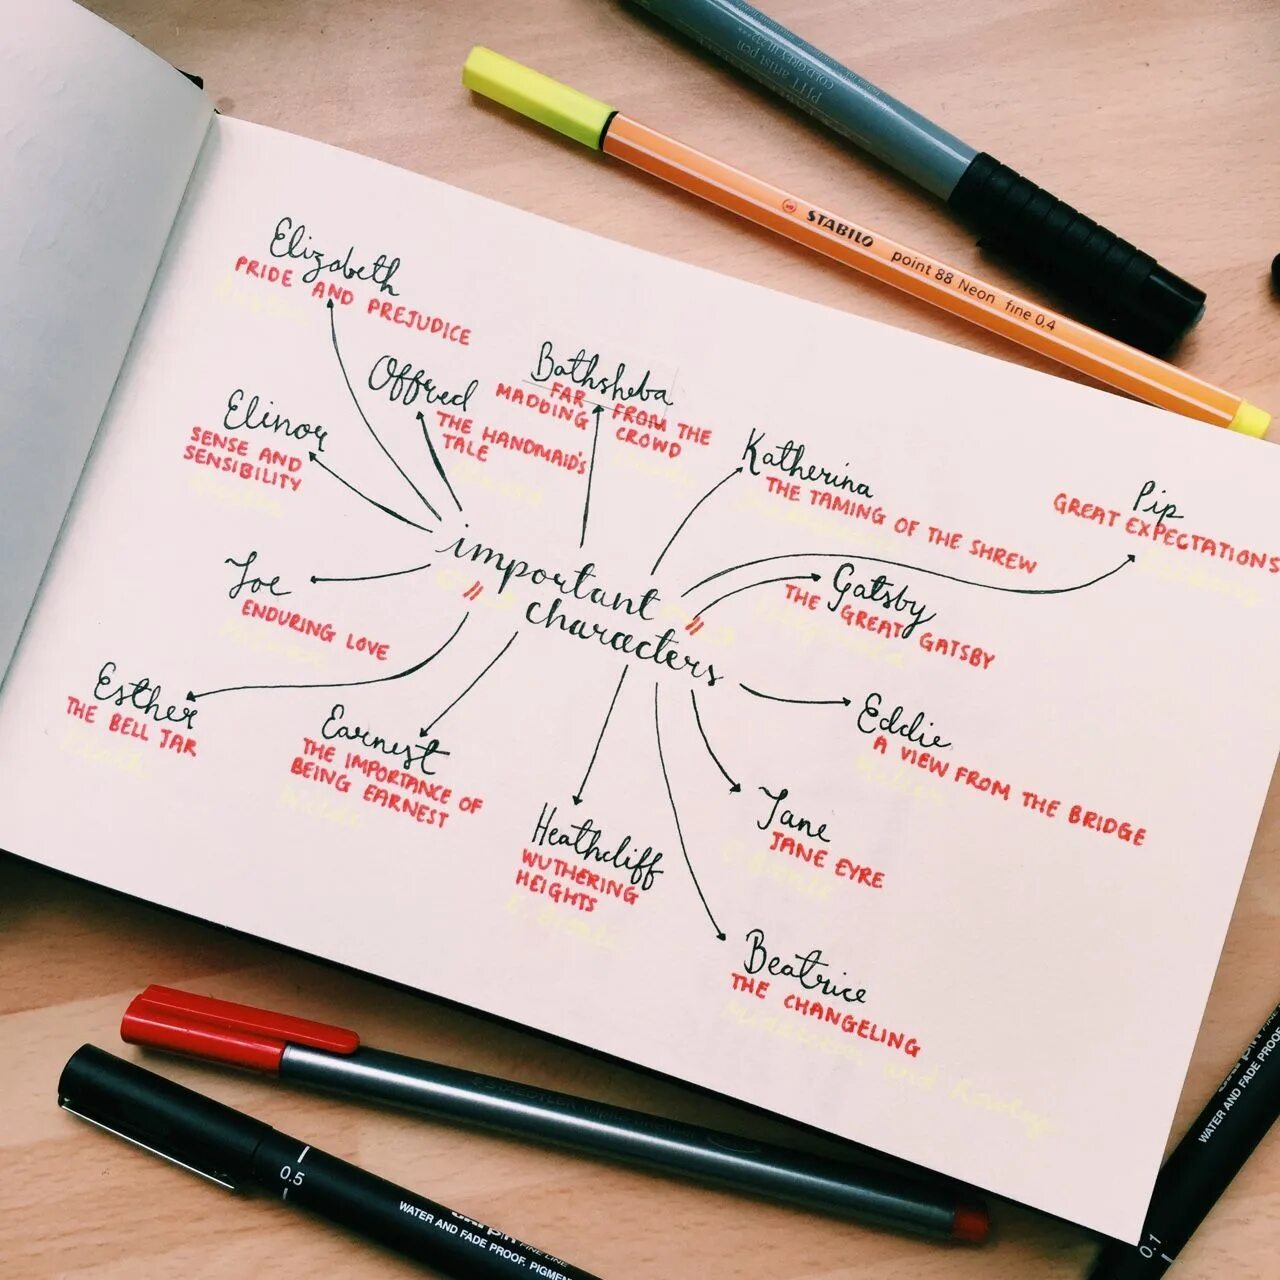 PITT artist pen
COLD GREY III 232***
STABILO point 88 Neon fine 0.4
Elizabeth
PRIDE AND PREJUDICE
Offred
THE HANDMAID'S
TALE
Bathsheba
FAR FROM THE
MADDING CROWD
Elinor
SENSE AND
SENSIBILITY
Katherina
THE TAMING OF THE SHREW
Pip
GREAT EXPECTATIONS
important
characters
Gatsby
THE GREAT GATSBY
Joe
ENDURING LOVE
Esther
THE BELL JAR
Earnest
THE IMPORTANCE OF
BEING EARNEST
Eddie
A VIEW FROM THE BRIDGE
Miller
Jane
JANE EYRE
Heathcliff
WUTHERING
HEIGHTS
E. Bronte
Beatrice
THE CHANGELING
Middleton and Rowley
STAEDTLER
0.5
WATER AND FADE PROOF. PIGMEN
FINE LINE
0.1
WATER AND FADE PROOF